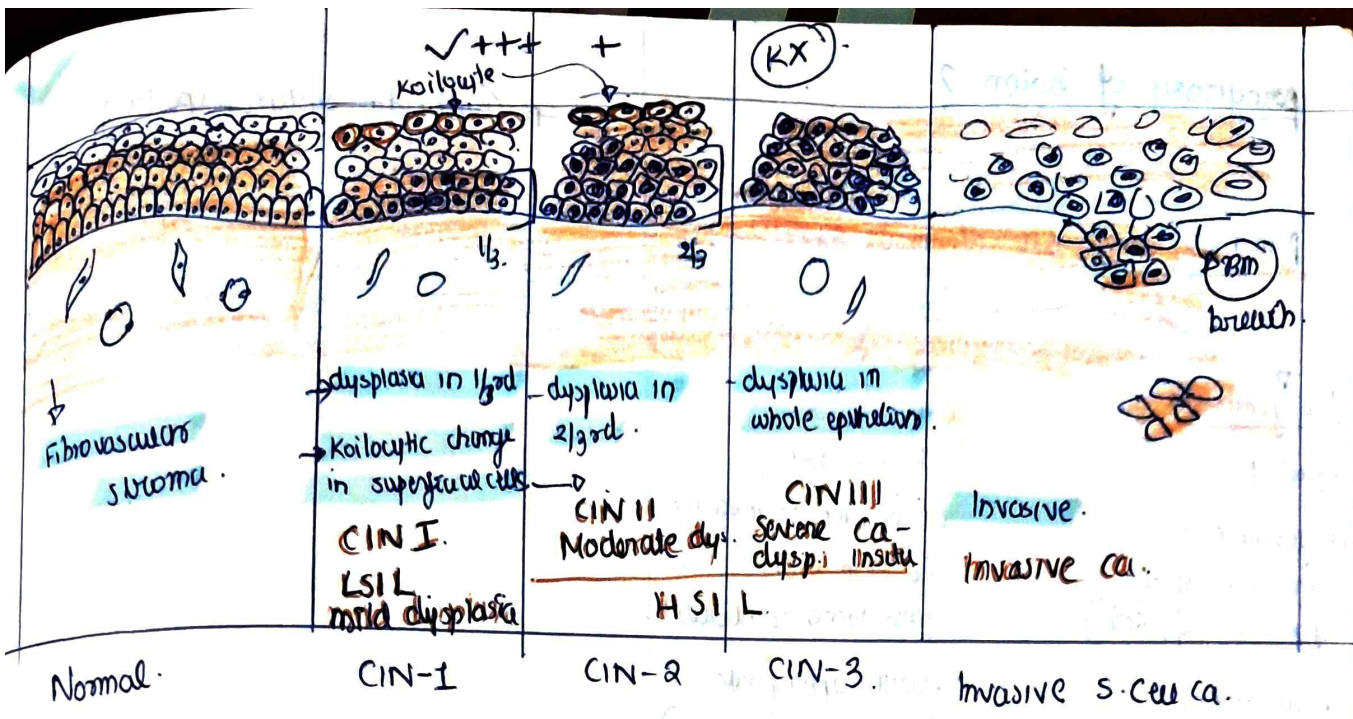 ✓+++ +
KX
Koilocyte
1/3.
2/3
BM
breach
Fibrovascular
stroma.
dysplasia in 1/3rd
Koilocytic change
in superficial cells
CIN I.
LSIL
mild dysplasia
dysplasia in
2/3rd.
CIN II
Moderate dys.
dysplasia in
whole epithelium.
CIN III
Severe Ca-
dysp. insitu
HSIL
Invasive.
Invasive ca.
Normal.
CIN-1
CIN-2
CIN-3.
Invasive s.cell ca.